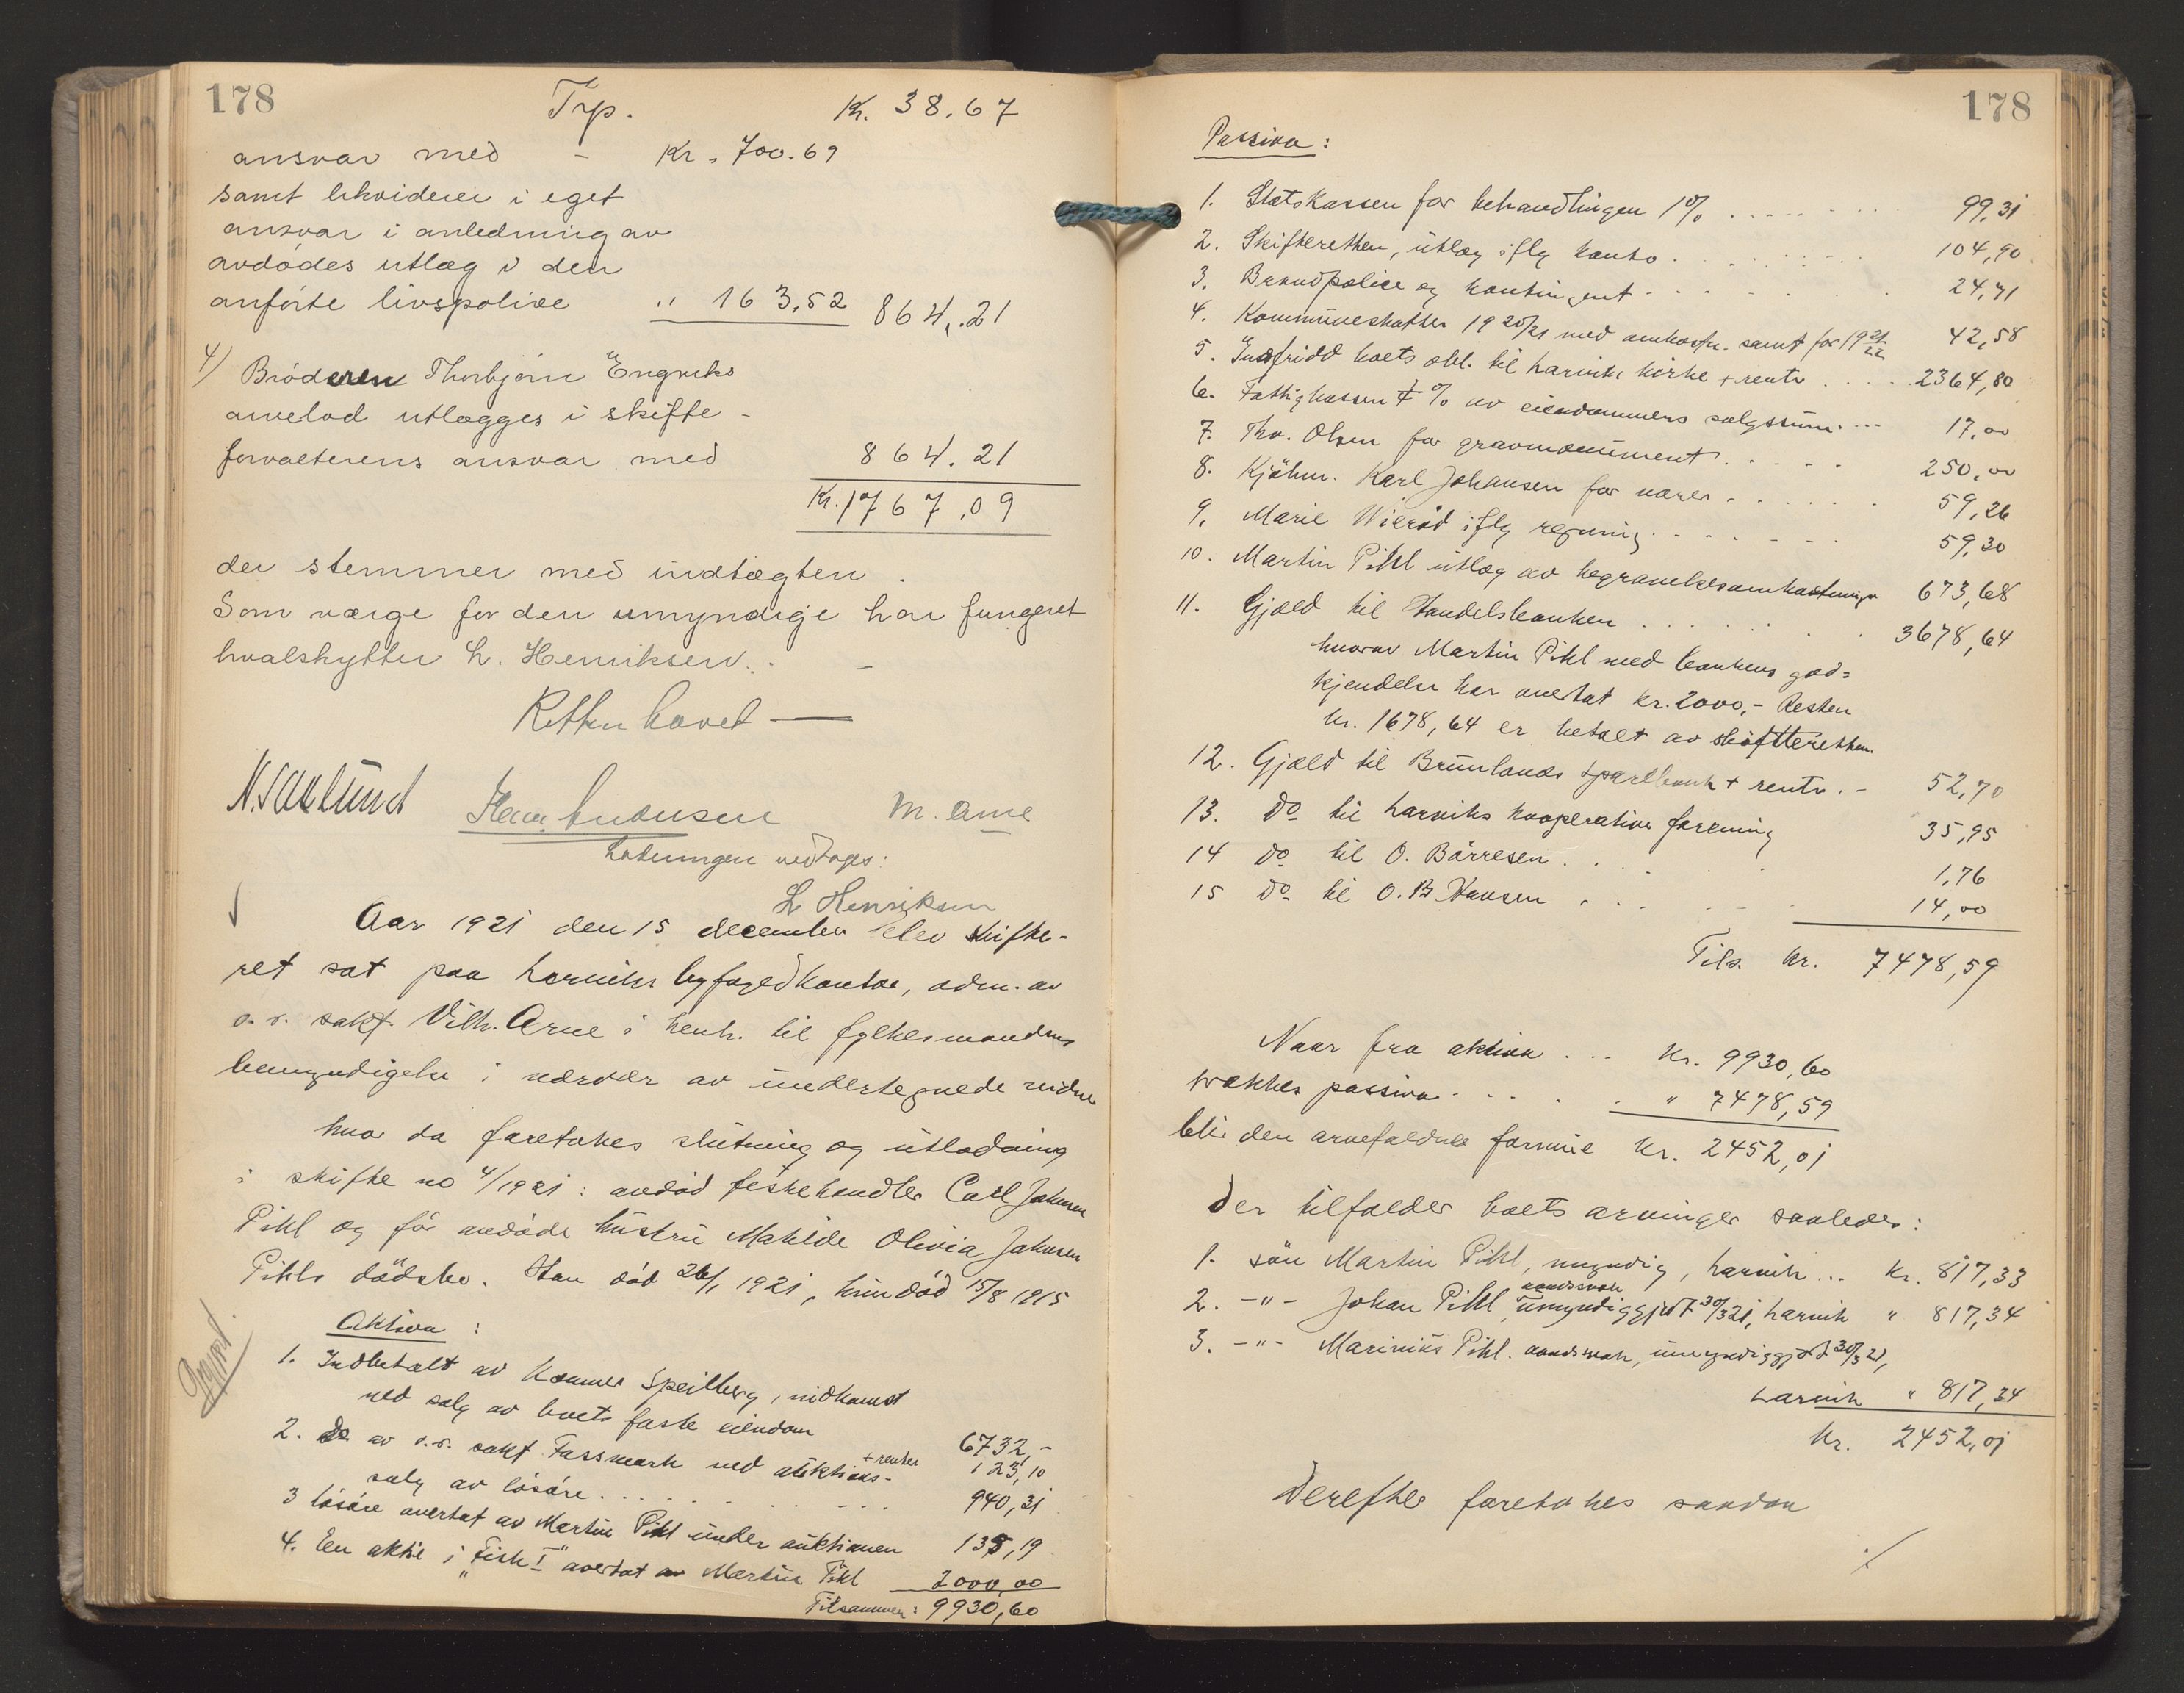 178
Trp. Kr. 38.67
ansvar med - Kr. 700.69
samt likviderer i eget
ansvar i anledning av
avdødes utlæg i den
anførte livspolice " 163,52 864,.21
4) Broderen Thorbjørn Engviks
arvelod utlægges i skifte-
forvalterens ansvar med 864.21
Kr. 1767.09
der stemmer med indtægten.
Som værge for den umyndige har fungeret
hvalskytter L. Henriksen. -
Retten hævet —
Utlodningen vedtages:
L Henriksen
Aar 1921 den 15 december blev skifte-
ret sat paa Larviks byfogedkontor, adm. av
o.r. sakf. Vilh. Arne i henh. til fylkesmandens
bemyndigelse i nærvær av undertegnede vidner
hvor da foretokes slutning og utlodning
i skifte no 4/1921: avdød fiskehandler Carl Johnsen
Pihl og før avdøde hustru Matilde Olivia Johnsen
Pihls dødsbo. Han død 26/1 1921, hun død 15/8 1915
Aktiva:
1. Indbetalt av Konner Speilberg, indkomst
ved salg av boets faste eiendom 6732,-
+ renter 123,10
2. Do av o.r. sakf. Fassmark ved auktions-
salg av løsøre . . . . 940,31
3 løsøre overtat av Martin Pihl under auktionen 135,19
4. En aktie i "Fisk I" overtat av Martin Pihl 2000,00
Tilsammen: 9930,60
178
Passiva:
1. Statskassen for behandlingen 1% . . . . 99,31
2. Skifteretten, utlæg iflg konto . . . . 104,90
3. Brandpolice og kontingent . . . . 24,71
4. Kommuneskatter 1920/21 med omkostn. samt for 1921/22 42,58
5. Indfridd boets obl. til Larviks kirke + rente . . . . 2364,80
6. Fattigkassen ¼ % av eiendommens salgssum . . . 17,00
7. Thv. Olsen for gravmonument . . . . 250,00
8. Kjøbm. Karl Johansen for varer . . . . 59,26
9. Marie Wierød iflg regning . . . . 59,30
10. Martin Pihl utlæg av begravelsesomkostninger 673,68
11. Gjæld til Handelsbanken . . . . 3678,64
hvorav Martin Pihl med bankens god=
kjendelse har overtat kr. 2000,- Resten
kr. 1678,64 er betalt av skifteretten.
12. Gjæld til Brunlanes sparebank + rente . - 52,70
13. Do til Larviks kooperative forening 35,95
14 do til O. Børresen . . 1,76
15 do til O. B Hansen . . . . 14,00
Tils. kr. 7478,59
Naar fra aktiva . . . kr. 9930,60
trækkes passiva . . . . " 7478,59
blir den arvefaldne formue kr. 2452,01
der tilfalder boets arvinger saaledes:
1. søn Martin Pihl, myndig, Larvik ... kr. 817,33
2. -"- Johan Pihl, aandssvak umyndiggjort 30/3 21, Larvik " 817,34
3. -"- Marinius Pihl. aandssvak, umyndiggjort 30/3 21,
Larvik " 817,34
kr. 2452,01
Derefter foretokes saadan
./.